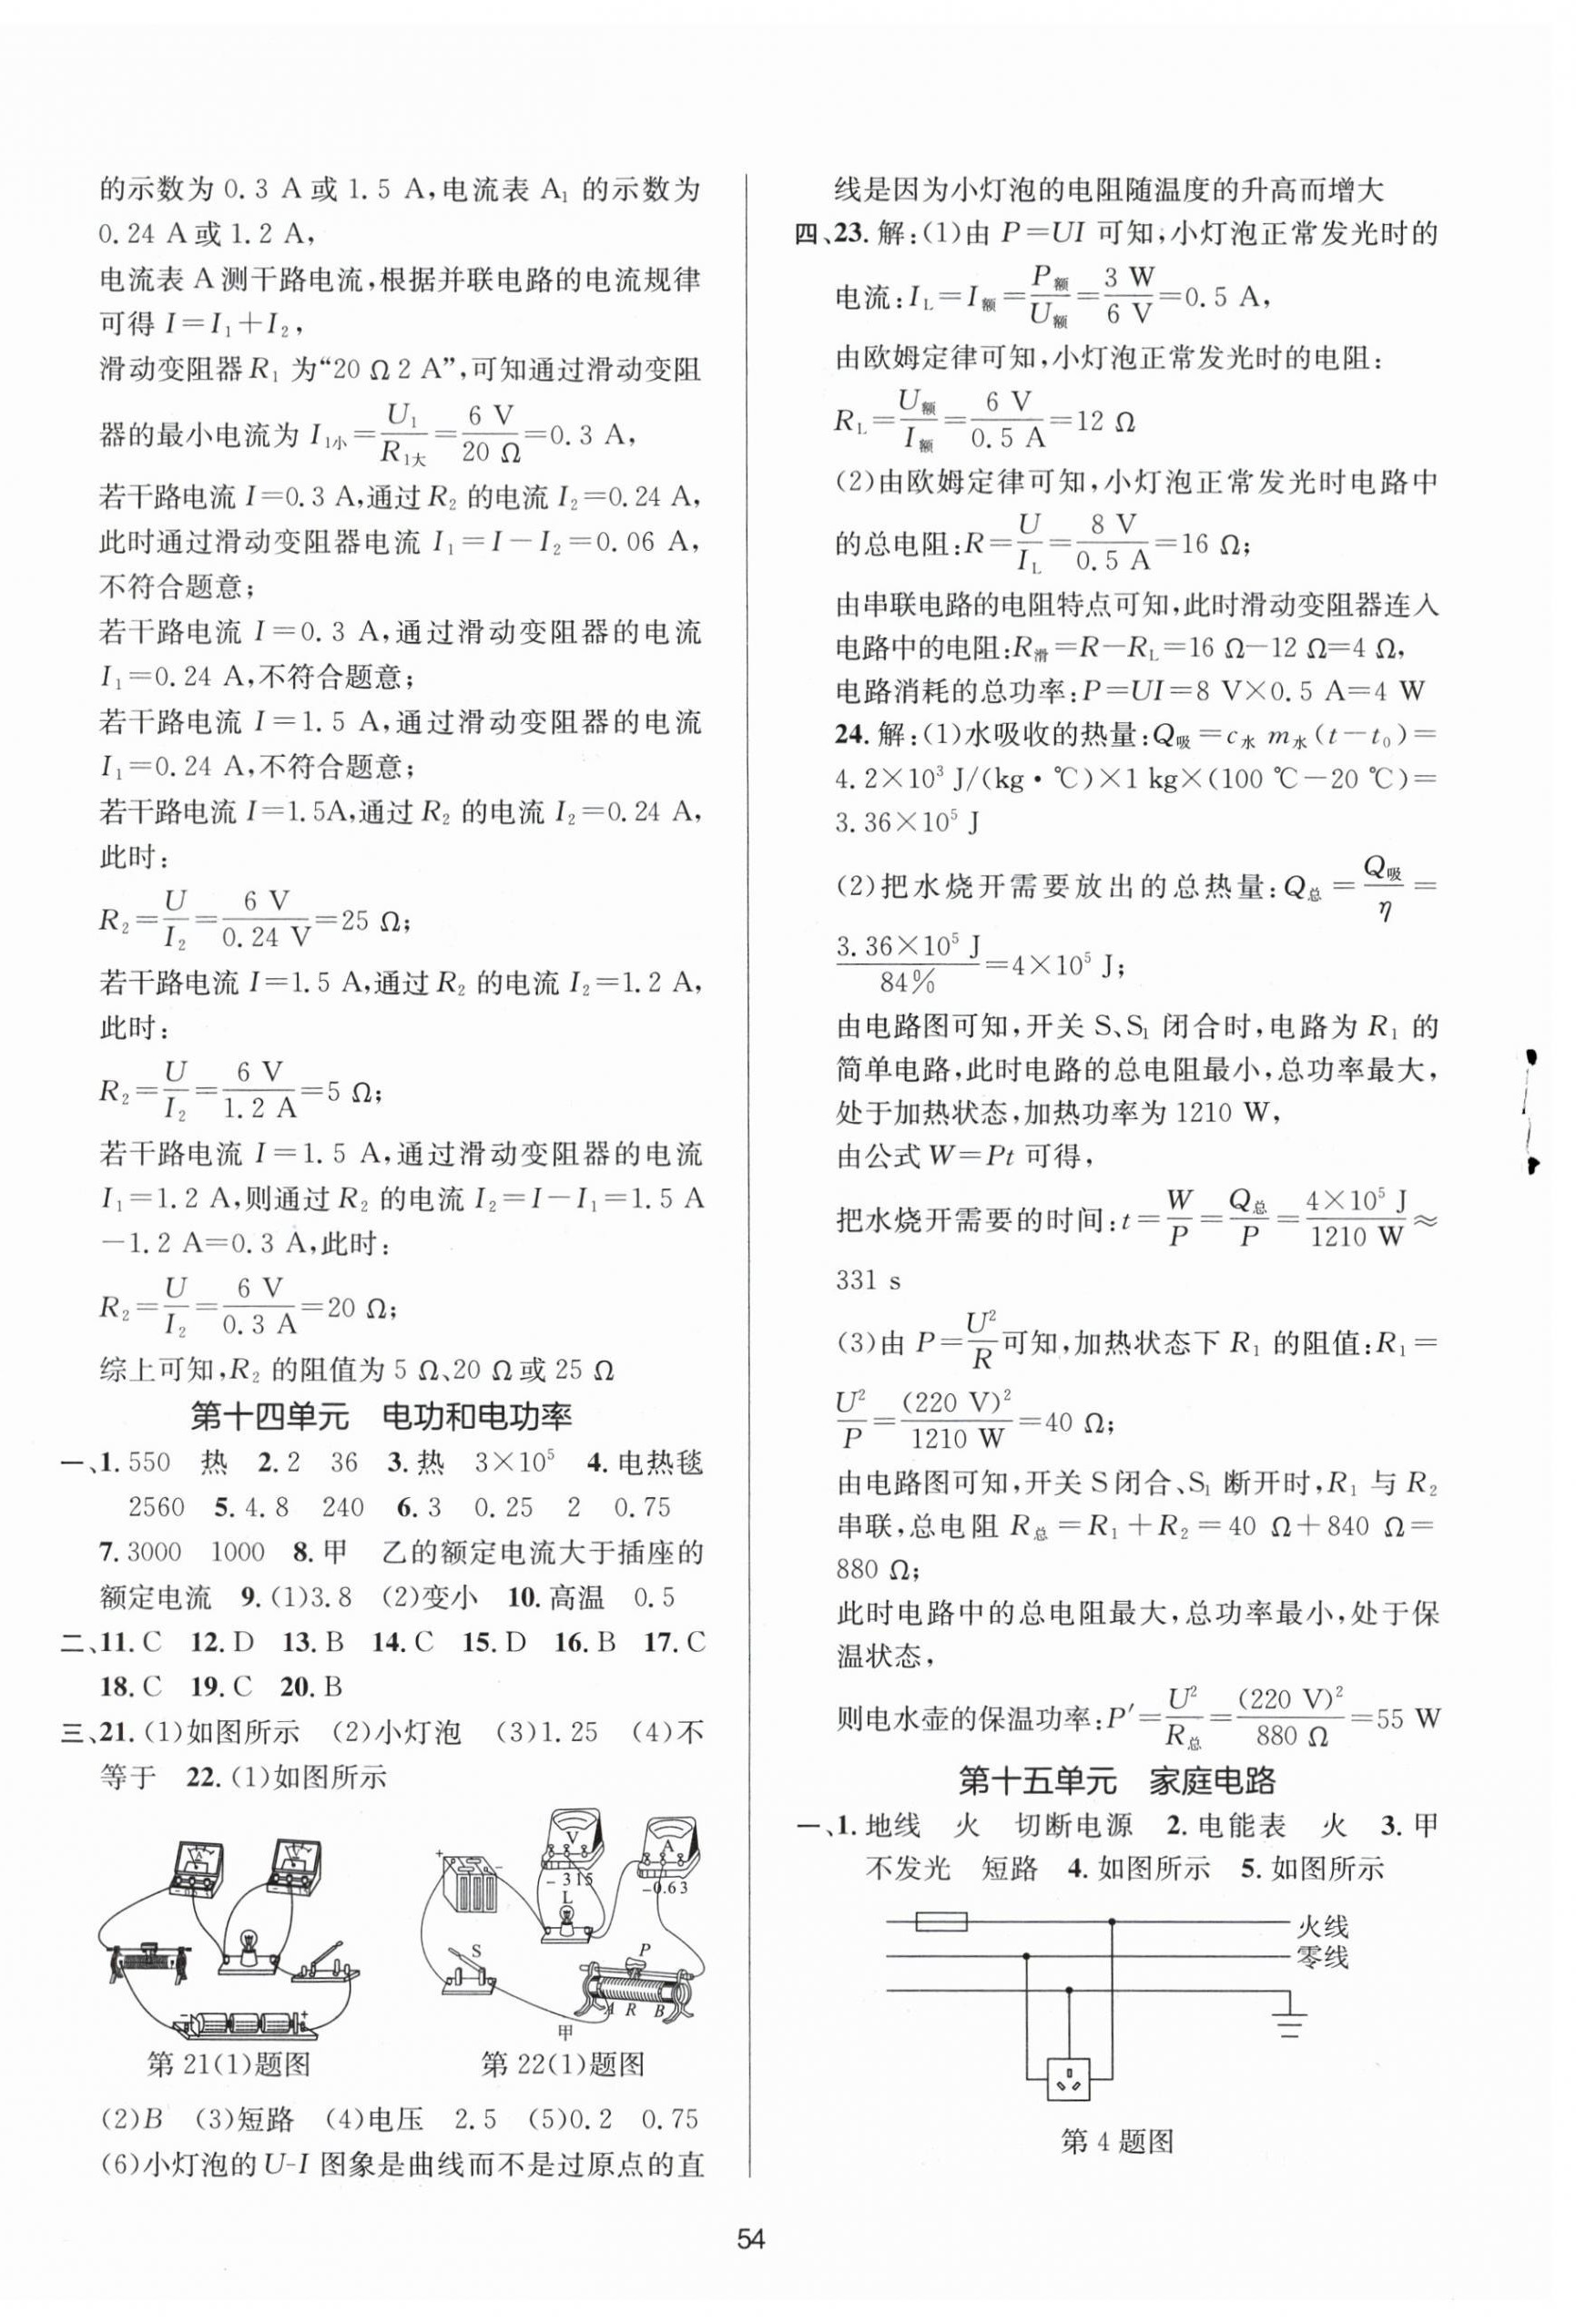 的示数为 0.3 A 或 1.5 A,电流表 A₁ 的示数为
0.24 A 或 1.2 A,
电流表 A 测干路电流,根据并联电路的电流规律
可得 I=I₁+I₂,
滑动变阻器 R₁ 为“20 Ω 2 A”,可知通过滑动变阻
器的最小电流为 I₁小=U₁/R₁大=6 V/20 Ω=0.3 A,
若干路电流 I=0.3 A,通过 R₂ 的电流 I₂=0.24 A,
此时通过滑动变阻器电流 I₁=I-I₂=0.06 A,
不符合题意;
若干路电流 I=0.3 A,通过滑动变阻器的电流
I₁=0.24 A,不符合题意;
若干路电流 I=1.5 A,通过滑动变阻器的电流
I₁=0.24 A,不符合题意;
若干路电流 I=1.5A,通过 R₂ 的电流 I₂=0.24 A,
此时:
R₂=U/I₂=6 V/0.24 V=25 Ω;
若干路电流 I=1.5 A,通过 R₂ 的电流 I₂=1.2 A,
此时:
R₂=U/I₂=6 V/1.2 A=5 Ω;
若干路电流 I=1.5 A,通过滑动变阻器的电流
I₁=1.2 A,则通过 R₂ 的电流 I₂=I-I₁=1.5 A
-1.2 A=0.3 A,此时:
R₂=U/I₂=6 V/0.3 A=20 Ω;
综上可知,R₂ 的阻值为 5 Ω、20 Ω 或 25 Ω
第十四单元 电功和电功率
一、1. 550 热 2. 2 36 3. 热 3×10⁵ 4. 电热毯
2560 5. 4.8 240 6. 3 0.25 2 0.75
7. 3000 1000 8. 甲 乙的额定电流大于插座的
额定电流 9. (1)3.8 (2)变小 10. 高温 0.5
二、11. C 12. D 13. B 14. C 15. D 16. B 17. C
18. C 19. C 20. B
三、21. (1)如图所示 (2)小灯泡 (3)1.25 (4)不
等于 22. (1)如图所示
A
V
- +
第 21(1)题图
+ -
V
- 3 15
L
A
-0.6 3
S
P
A R B
甲
第 22(1)题图
(2)B (3)短路 (4)电压 2.5 (5)0.2 0.75
(6)小灯泡的 U-I 图象是曲线而不是过原点的直
线是因为小灯泡的电阻随温度的升高而增大
四、23. 解:(1)由 P=UI 可知,小灯泡正常发光时的
电流:I_L=I额=P额/U额=3 W/6 V=0.5 A,
由欧姆定律可知,小灯泡正常发光时的电阻:
R_L=U额/I额=6 V/0.5 A=12 Ω
(2)由欧姆定律可知,小灯泡正常发光时电路中
的总电阻:R=U/I_L=8 V/0.5 A=16 Ω;
由串联电路的电阻特点可知,此时滑动变阻器连入
电路中的电阻:R滑=R-R_L=16 Ω-12 Ω=4 Ω,
电路消耗的总功率:P=UI=8 V×0.5 A=4 W
24. 解:(1)水吸收的热量:Q吸=c水 m水(t-t₀)=
4.2×10³ J/(kg·℃)×1 kg×(100 ℃-20 ℃)=
3.36×10⁵ J
(2)把水烧开需要放出的总热量:Q总=Q吸/η=
3.36×10⁵ J/84%=4×10⁵ J;
由电路图可知,开关 S、S₁ 闭合时,电路为 R₁ 的
简单电路,此时电路的总电阻最小,总功率最大,
处于加热状态,加热功率为 1210 W,
由公式 W=Pt 可得,
把水烧开需要的时间:t=W/P=Q总/P=4×10⁵ J/1210 W≈
331 s
(3)由 P=U²/R可知,加热状态下 R₁ 的阻值:R₁=
U²/P=(220 V)²/1210 W=40 Ω;
由电路图可知,开关 S 闭合、S₁ 断开时,R₁ 与 R₂
串联,总电阻 R总=R₁+R₂=40 Ω+840 Ω=
880 Ω;
此时电路中的总电阻最大,总功率最小,处于保
温状态,
则电水壶的保温功率:P′=U²/R总=(220 V)²/880 Ω=55 W
第十五单元 家庭电路
一、1. 地线 火 切断电源 2. 电能表 火 3. 甲
不发光 短路 4. 如图所示 5. 如图所示
火线
零线
第 4 题图
54